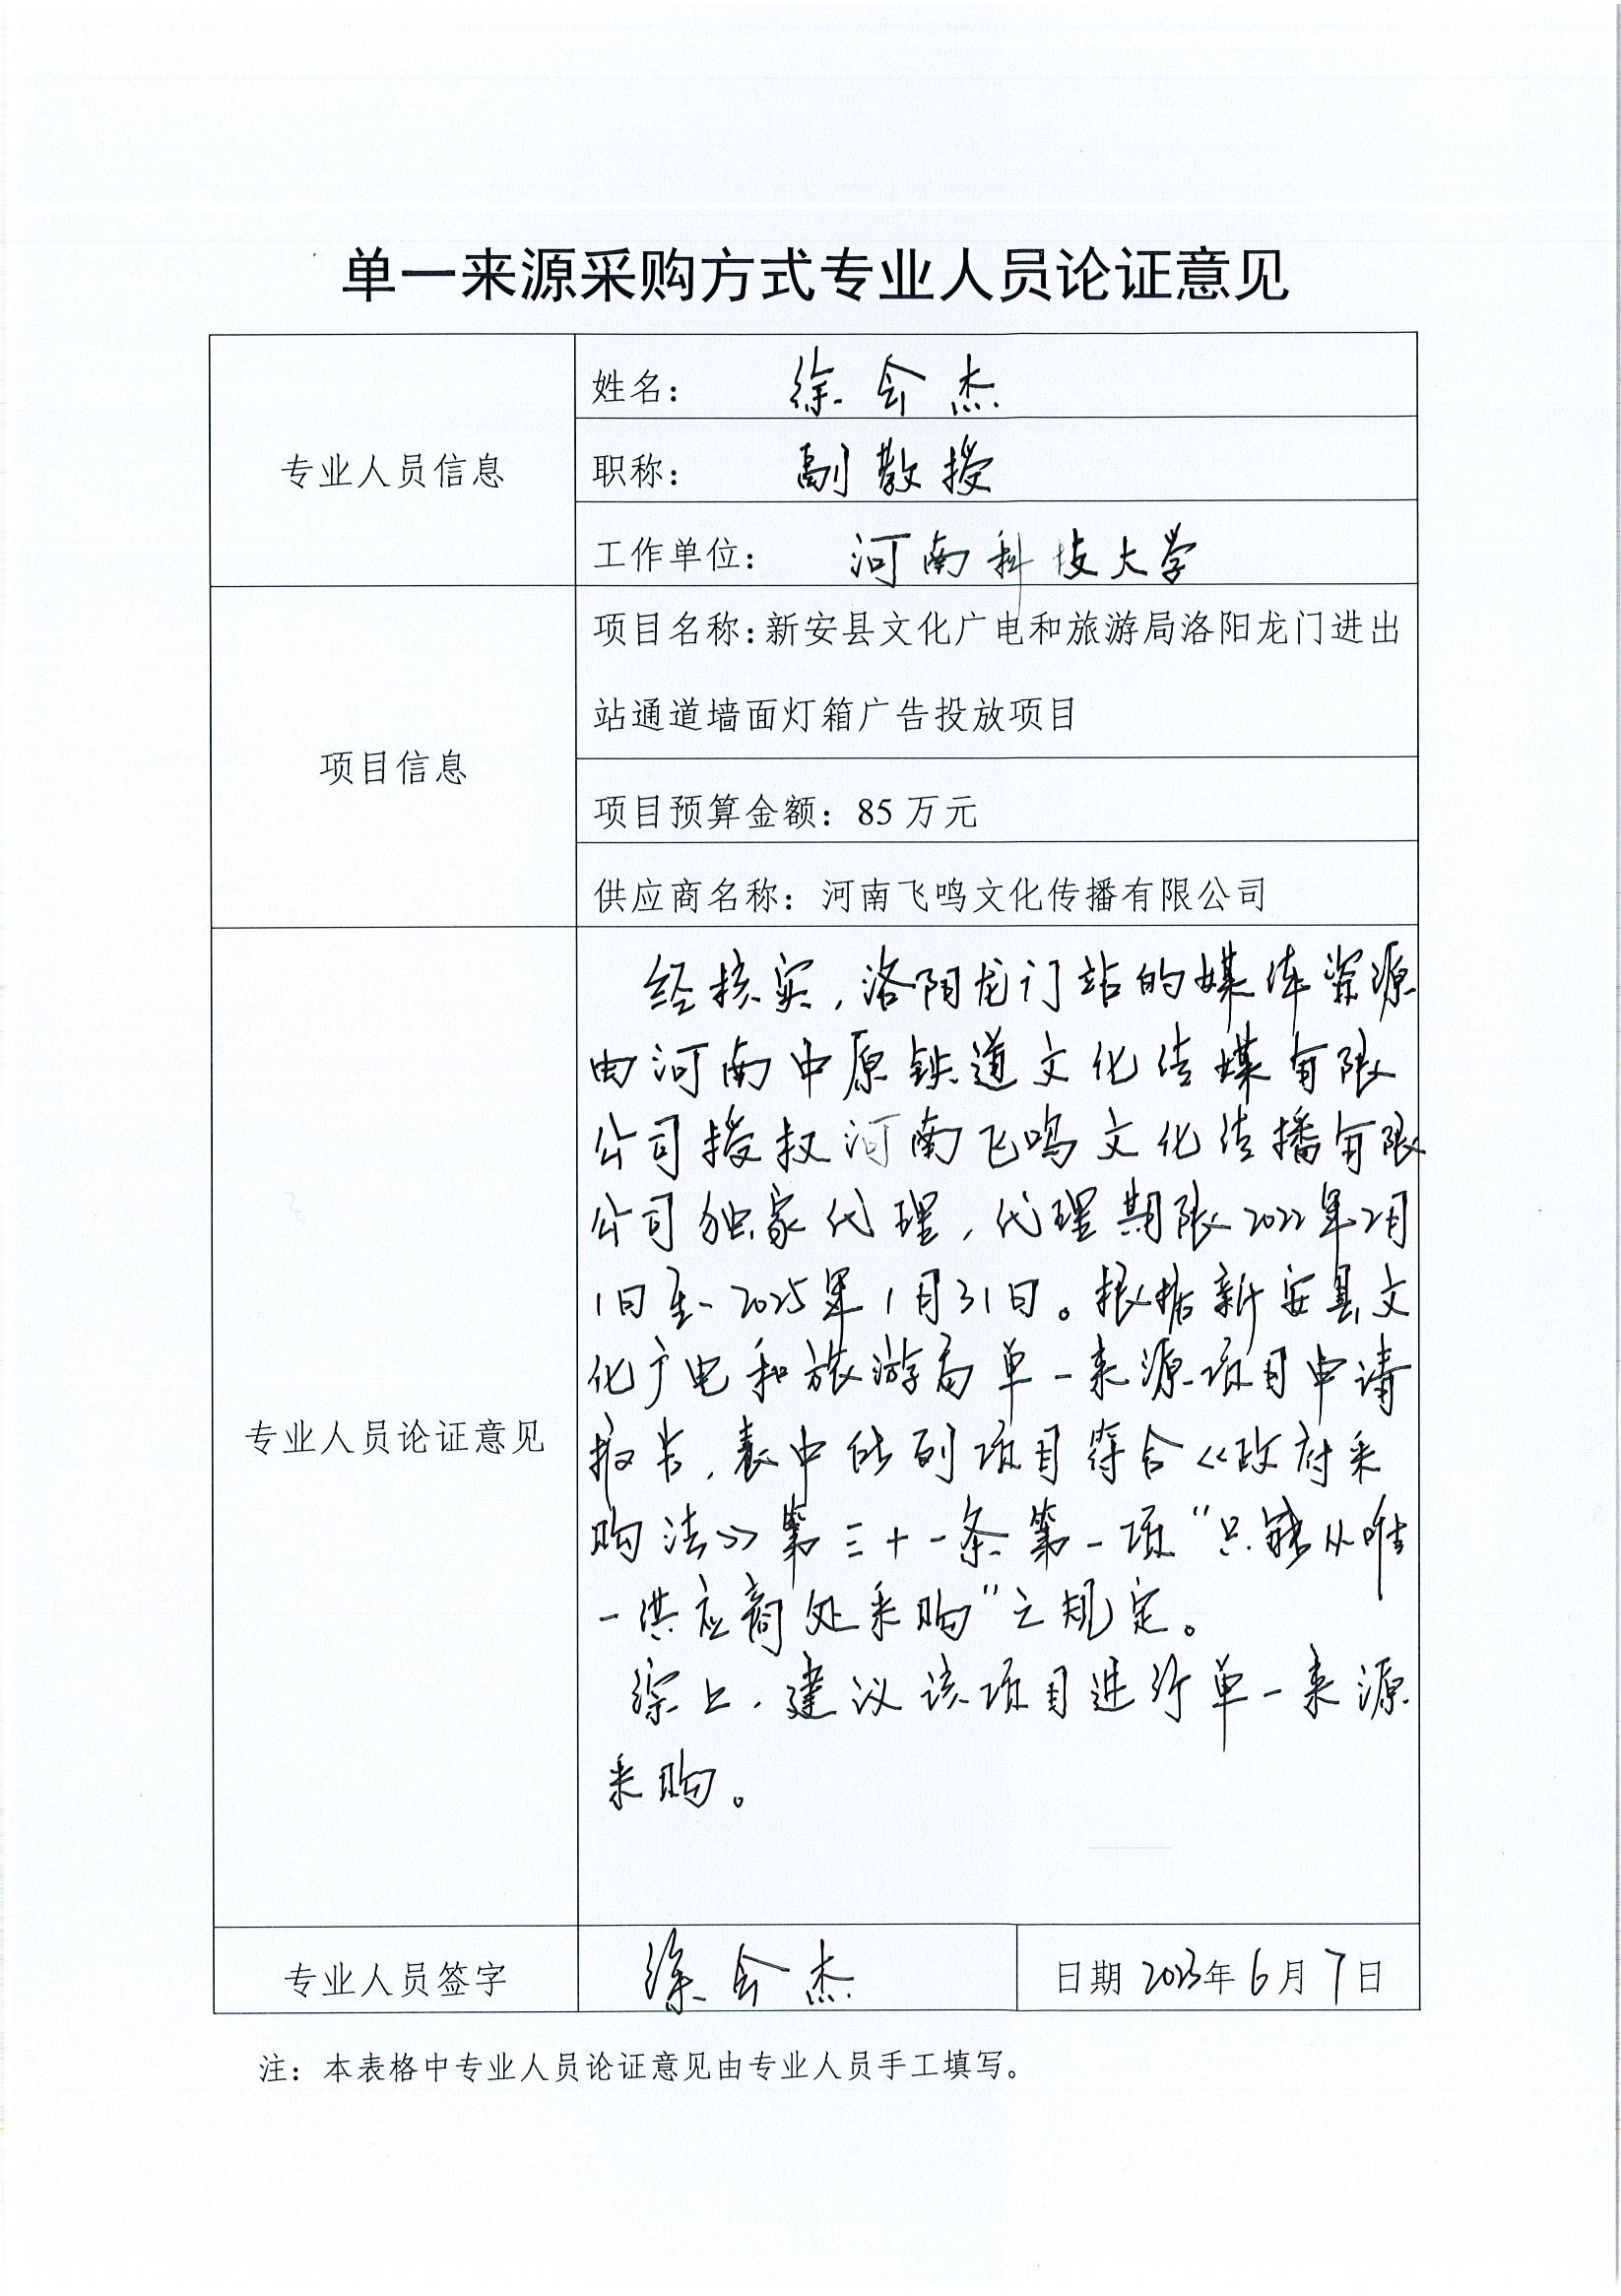 单一来源采购方式专业人员论证意见
专业人员信息
姓名： 徐会杰
职称： 副教授
工作单位： 河南科技大学
项目信息
项目名称：新安县文化广电和旅游局洛阳龙门进出
站通道墙面灯箱广告投放项目
项目预算金额：85 万元
供应商名称：河南飞鸣文化传播有限公司
专业人员论证意见
经核实，洛阳龙门站的媒体资源
由河南中原铁道文化传媒有限
公司授权河南飞鸣文化传播有限
公司独家代理，代理期限2022年2月
1日至2025年1月31日。根据新安县文
化广电和旅游局单一来源项目申请
报告，表中所列项目符合《政府采
购法》第三十一条第一项“只能从唯
一供应商处采购”之规定。
综上，建议该项目进行单一来源
采购。
专业人员签字
徐会杰
日期 2023年6月7日
注：本表格中专业人员论证意见由专业人员手工填写。